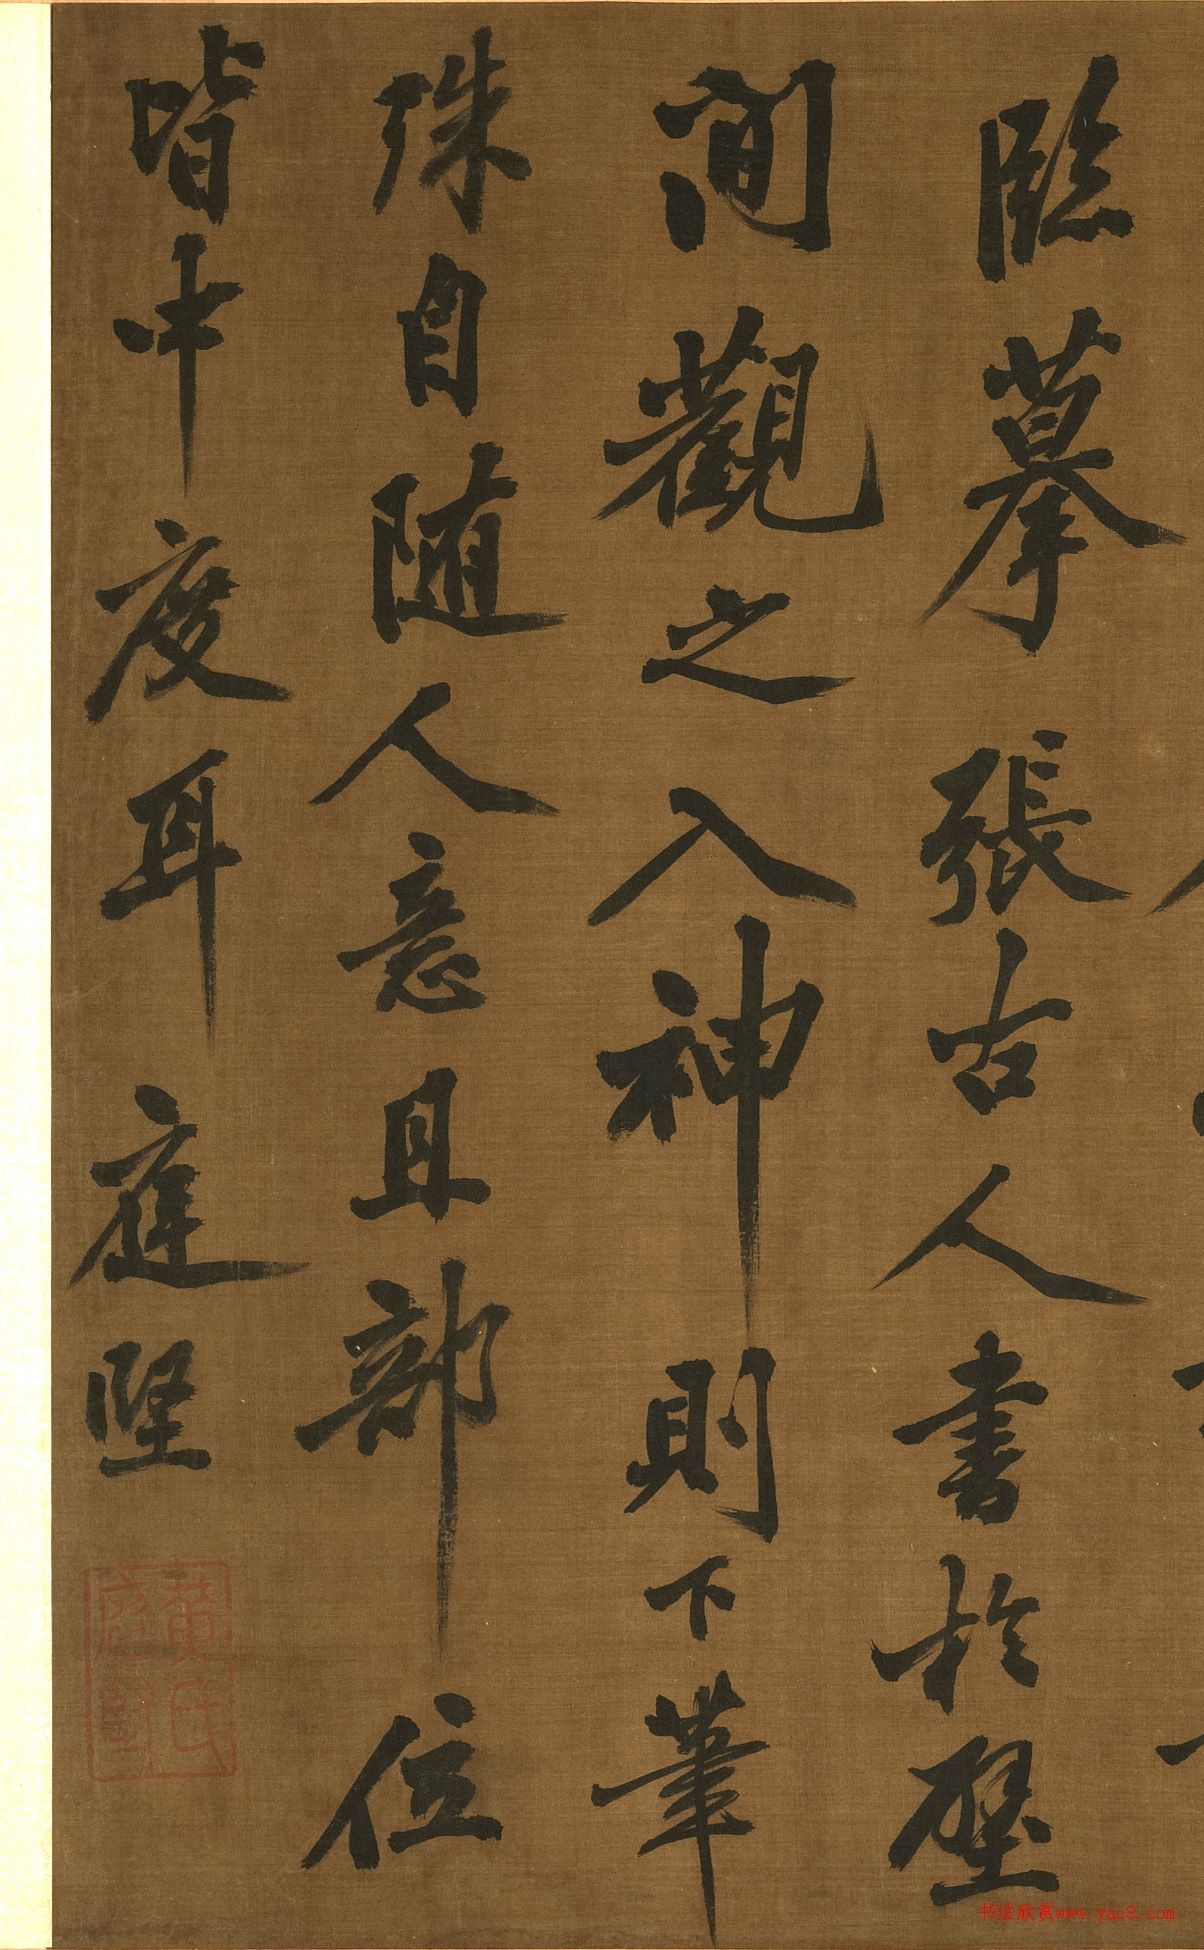 臨摹張古人書於壁
間觀之入神則下筆
殊自随人意且部位
皆中度耳 庭堅
黄氏庭堅
书法欣赏www.yac8.com